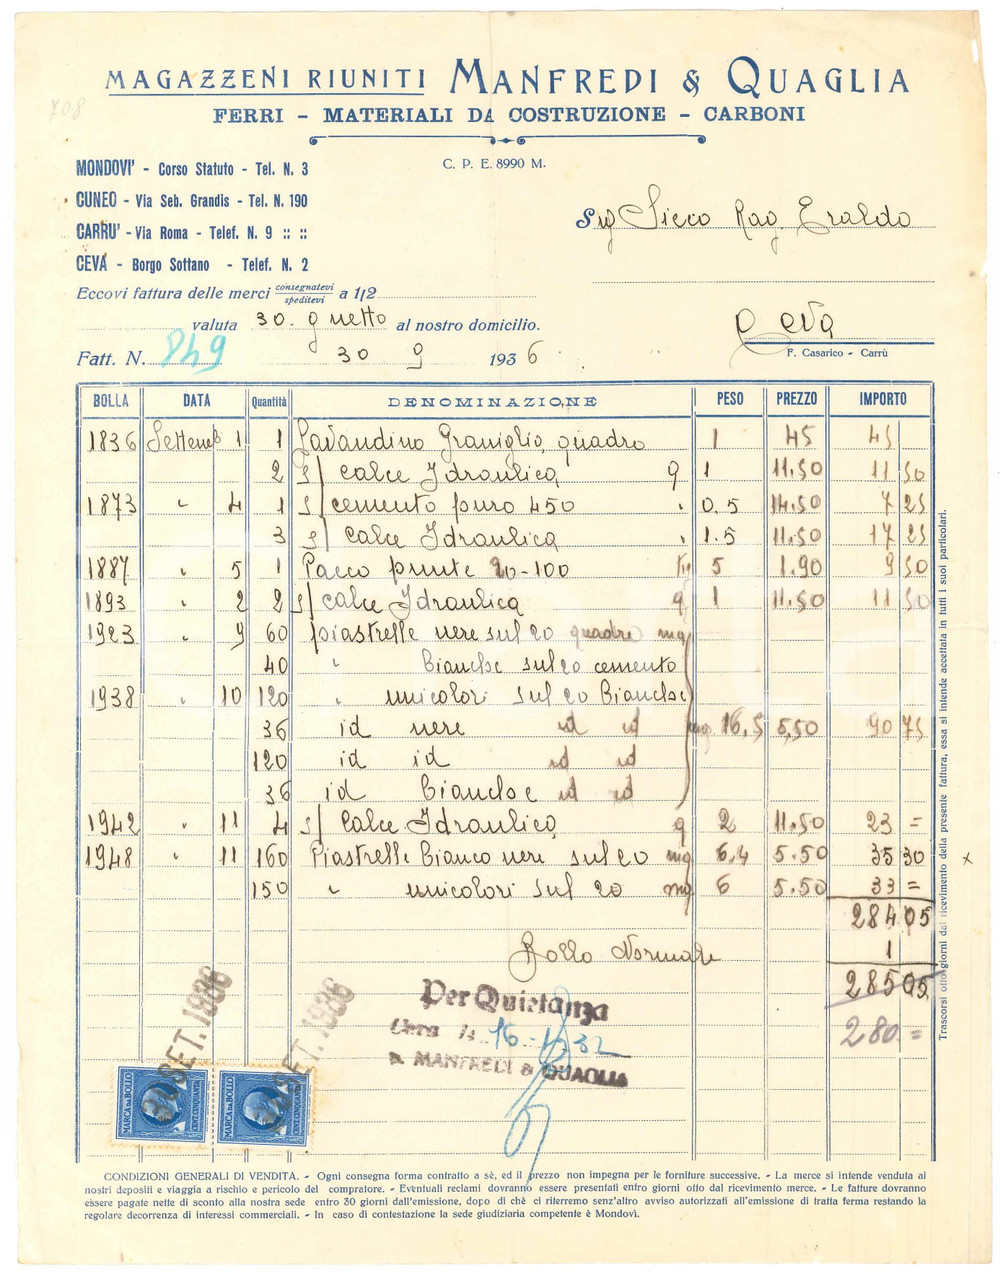 708
MAGAZZENI RIUNITI MANFREDI & QUAGLIA
FERRI - MATERIALI DA COSTRUZIONE - CARBONI
C. P. E. 8990 M.
MONDOVI' - Corso Statuto - Tel. N. 3
CUNEO - Via Seb. Grandis - Tel. N. 190
CARRU' - Via Roma - Telef. N. 9 :: ::
CEVA - Borgo Sottano - Telef. N. 2
Sig Sicco Rag. Eraldo
Ceva
Eccovi fattura delle merci consegnatevi speditevi a 1/2
valuta 30. g netto al nostro domicilio.
Fatt. N. 849 30 9 1936
F. Casarico - Carrù
BOLLA DATA Quantità DENOMINAZIONE PESO PREZZO IMPORTO
1836 Settemb 1 1 Lavandino Graniglia quadro 1 45 45
2 s/ calce Idraulica q 1 11.50 11 50
1873 " 4 1 s/ cemento puro 450 " 0.5 14.50 7 25
3 s/ calce Idraulica " 1.5 11.50 17 25
1887 " 5 1 Pacco punte 20-100 Kg 5 1.90 9 50
1893 " 2 2 s/ calce Idraulica q 1 11.50 11 50
1923 " 9 60 piastrelle nere sul 20 quadre mq
40 " Bianche sul 20 cemento
1938 " 10 120 " unicolori sul 20 Bianche
36 id nere id id mq 16,5 5,50 90 75
120 id id id id
36 id Bianche id id
1942 " 11 4 s/ Calce Idraulica q 2 11.50 23 =
1948 " 11 160 Piastrelle Bianco nere sul 20 mq 6,4 5.50 35 30
150 " unicolori sul 20 mq 6 5.50 33 =
284 05
Bollo Normale 1
285 05
280 =
Per Quietanza
Ceva li 16
p. MANFREDI & QUAGLIA
30 SET. 1936
SET. 1936
MARCA DA BOLLO CENT. CINQUANTA
MARCA DA BOLLO CENT. CINQUANTA
Trascorsi otto giorni dal ricevimento della presente fattura, essa si intende accettata in tutti i suoi particolari.
CONDIZIONI GENERALI DI VENDITA. - Ogni consegna forma contratto a sè, ed il prezzo non impegna per le forniture successive. - La merce si intende venduta ai
nostri depositi e viaggia a rischio e pericolo del compratore. - Eventuali reclami dovranno essere presentati entro giorni otto dal ricevimento merce. - Le fatture dovranno
essere pagate nette di sconto alla nostra sede entro 30 giorni dall'emissione, dopo di chè ci riterremo senz'altro avviso autorizzati all'emissione di tratta ferma restando la
regolare decorrenza di interessi commerciali. - In caso di contestazione la sede giudiziaria competente è Mondovì.